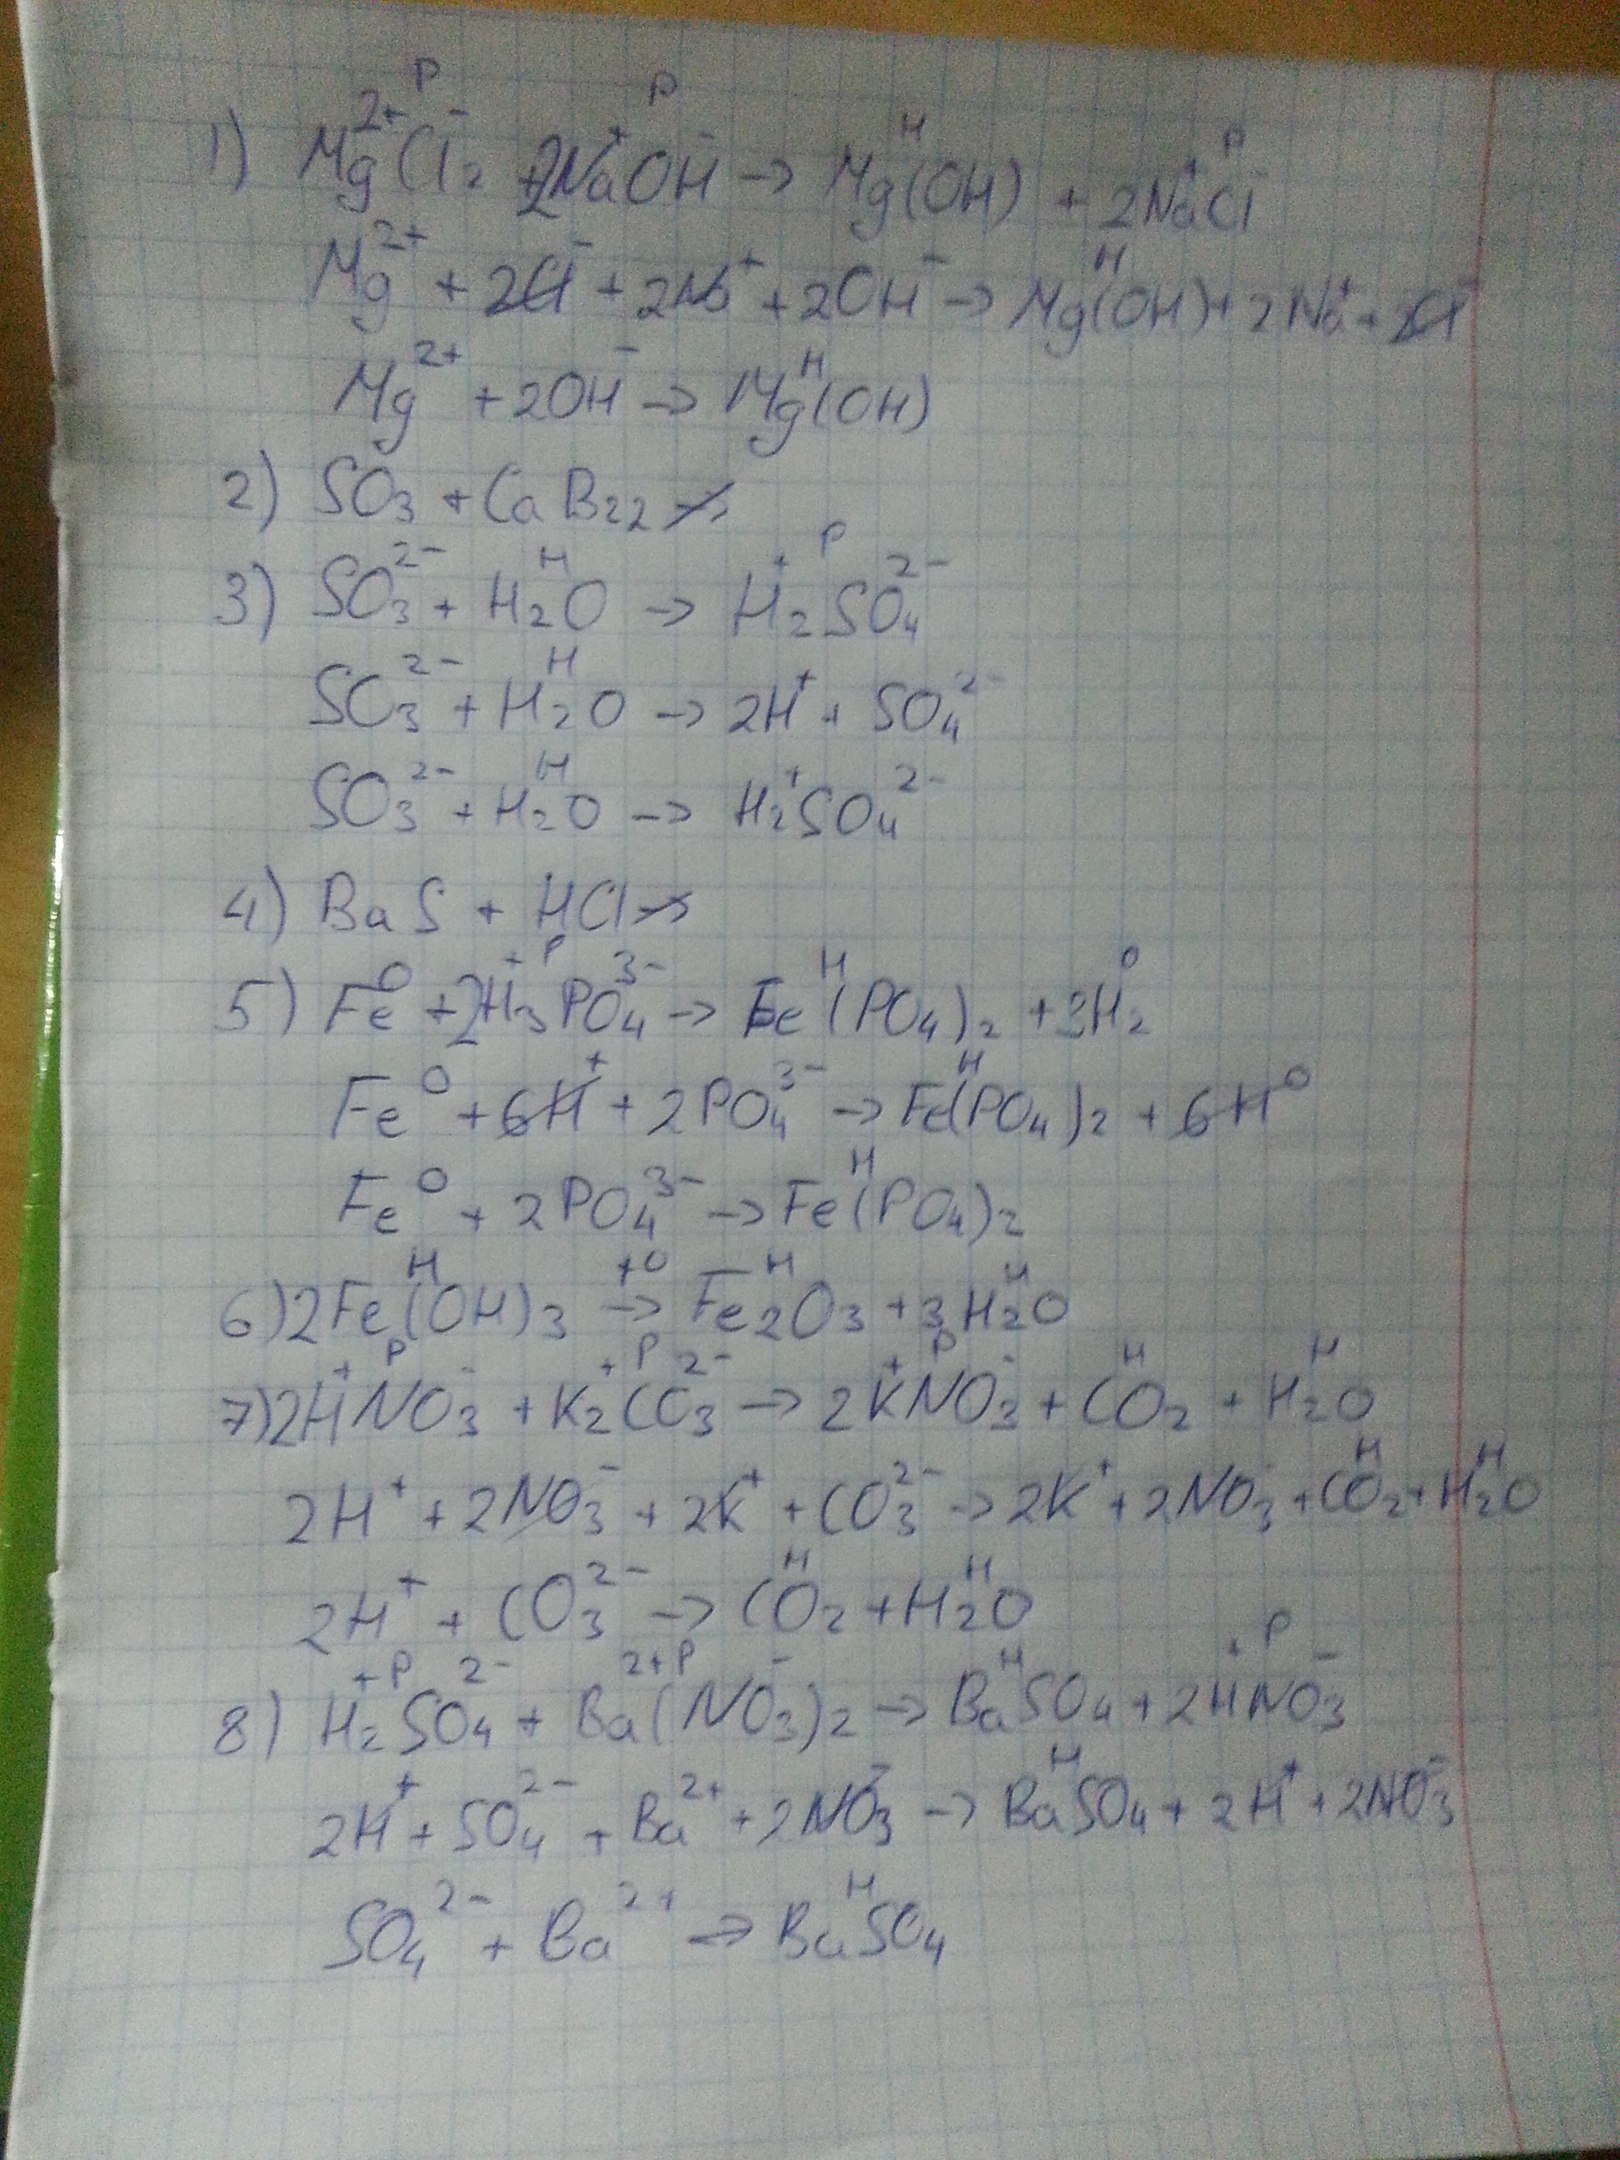 1) Mg²⁺Cl⁻₂ + 2Na⁺OH⁻ → Mg(OH) + 2Na⁺Cl⁻
Mg²⁺ + 2Cl⁻ + 2Na⁺ + 2OH⁻ → Mg(OH) + 2Na⁺ + 2Cl⁻
Mg²⁺ + 2OH⁻ → Mg(OH)
2) SO₃ + CaBr₂ ↛
3) SO₃²⁻ + H₂O → H⁺₂SO₄²⁻
SO₃²⁻ + H₂O → 2H⁺ + SO₄²⁻
SO₃²⁻ + H₂O → H₂⁺SO₄²⁻
4) BaS + HCl ↛
5) Fe⁰ + 2H⁺₃PO₄³⁻ → Fe(PO₄)₂ + 3H₂⁰
Fe⁰ + 6H⁺ + 2PO₄³⁻ → Fe(PO₄)₂ + 6H⁰
Fe⁰ + 2PO₄³⁻ → Fe(PO₄)₂
6) 2Fe(OH)₃ → Fe₂O₃ + 3H₂O
7) 2H⁺NO₃⁻ + K₂⁺CO₃²⁻ → 2K⁺NO₃⁻ + CO₂ + H₂O
2H⁺ + 2NO₃⁻ + 2K⁺ + CO₃²⁻ → 2K⁺ + 2NO₃⁻ + CO₂ + H₂O
2H⁺ + CO₃²⁻ → CO₂ + H₂O
8) H₂⁺SO₄²⁻ + Ba²⁺(NO₃⁻)₂ → BaSO₄ + 2H⁺NO₃⁻
2H⁺ + SO₄²⁻ + Ba²⁺ + 2NO₃⁻ → BaSO₄ + 2H⁺ + 2NO₃⁻
SO₄²⁻ + Ba²⁺ → BaSO₄